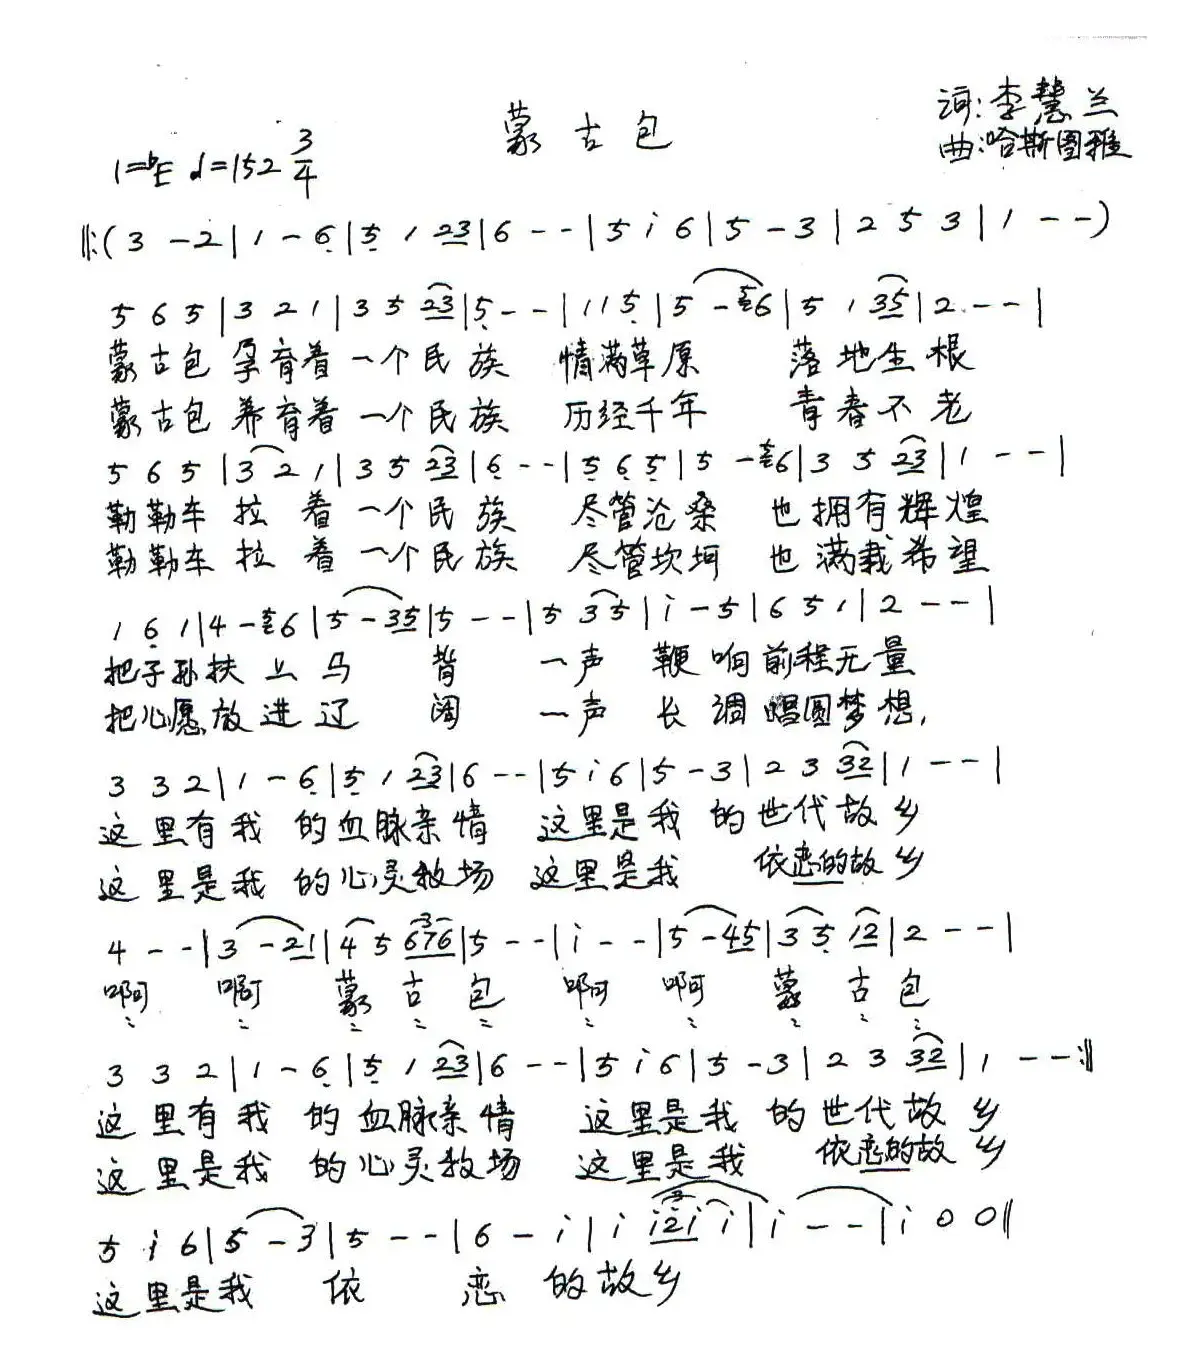 蒙古包
词:李慧兰
曲:哈斯图雅
1=♭E ♩=152 3/4
‖:( 3 - 2 | 1 - 6̣ | 5̣ 1 23 | 6 - - | 5 i 6 | 5 - 3 | 2 5 3 | 1 - - )
5 6 5 | 3 2 1 | 3 5 23 | 5̣ - - | 1 1 5̣ | 5 - 6 | 5 1 35 | 2 - - |
蒙古包 孕育着 一个民族 情满草原 落地生根
蒙古包 养育着 一个民族 历经千年 青春不老
5 6 5 | 3 2 1 | 3 5 23 | 6̣ - - | 5̣ 6̣ 5̣ | 5 - 6 | 3 5 23 | 1 - - |
勒勒车 拉着 一个民族 尽管沧桑 也拥有辉煌
勒勒车 拉着 一个民族 尽管坎坷 也满载希望
1 6̣ 1 | 4 - 6 | 5 - 35 | 5 - - | 5 3 5 | i - 5 | 6 5 1 | 2 - - |
把子孙扶上马背 一声鞭响前程无量
把心愿放进辽阔 一声长调唱圆梦想,
3 3 2 | 1 - 6̣ | 5̣ 1 23 | 6 - - | 5 i 6 | 5 - 3 | 2 3 32 | 1 - - |
这里有我的血脉亲情 这里是我的世代故乡
这里是我的心灵牧场 这里是我 依恋的故乡
4 - - | 3 - 21 | 4 5 676 | 5 - - | i - - | 5 - 45 | 3 5 12 | 2 - - |
啊 啊 蒙古包 啊 啊 蒙古包
3 3 2 | 1 - 6̣ | 5̣ 1 23 | 6 - - | 5 i 6 | 5 - 3 | 2 3 32 | 1 - - :‖
这里有我的血脉亲情 这里是我的世代故乡
这里是我的心灵牧场 这里是我 依恋的故乡
5 i 6 | 5 - 3 | 5 - - | 6 - i | i i2i i | i - - | i 0 0 ‖
这里是我 依恋的故乡